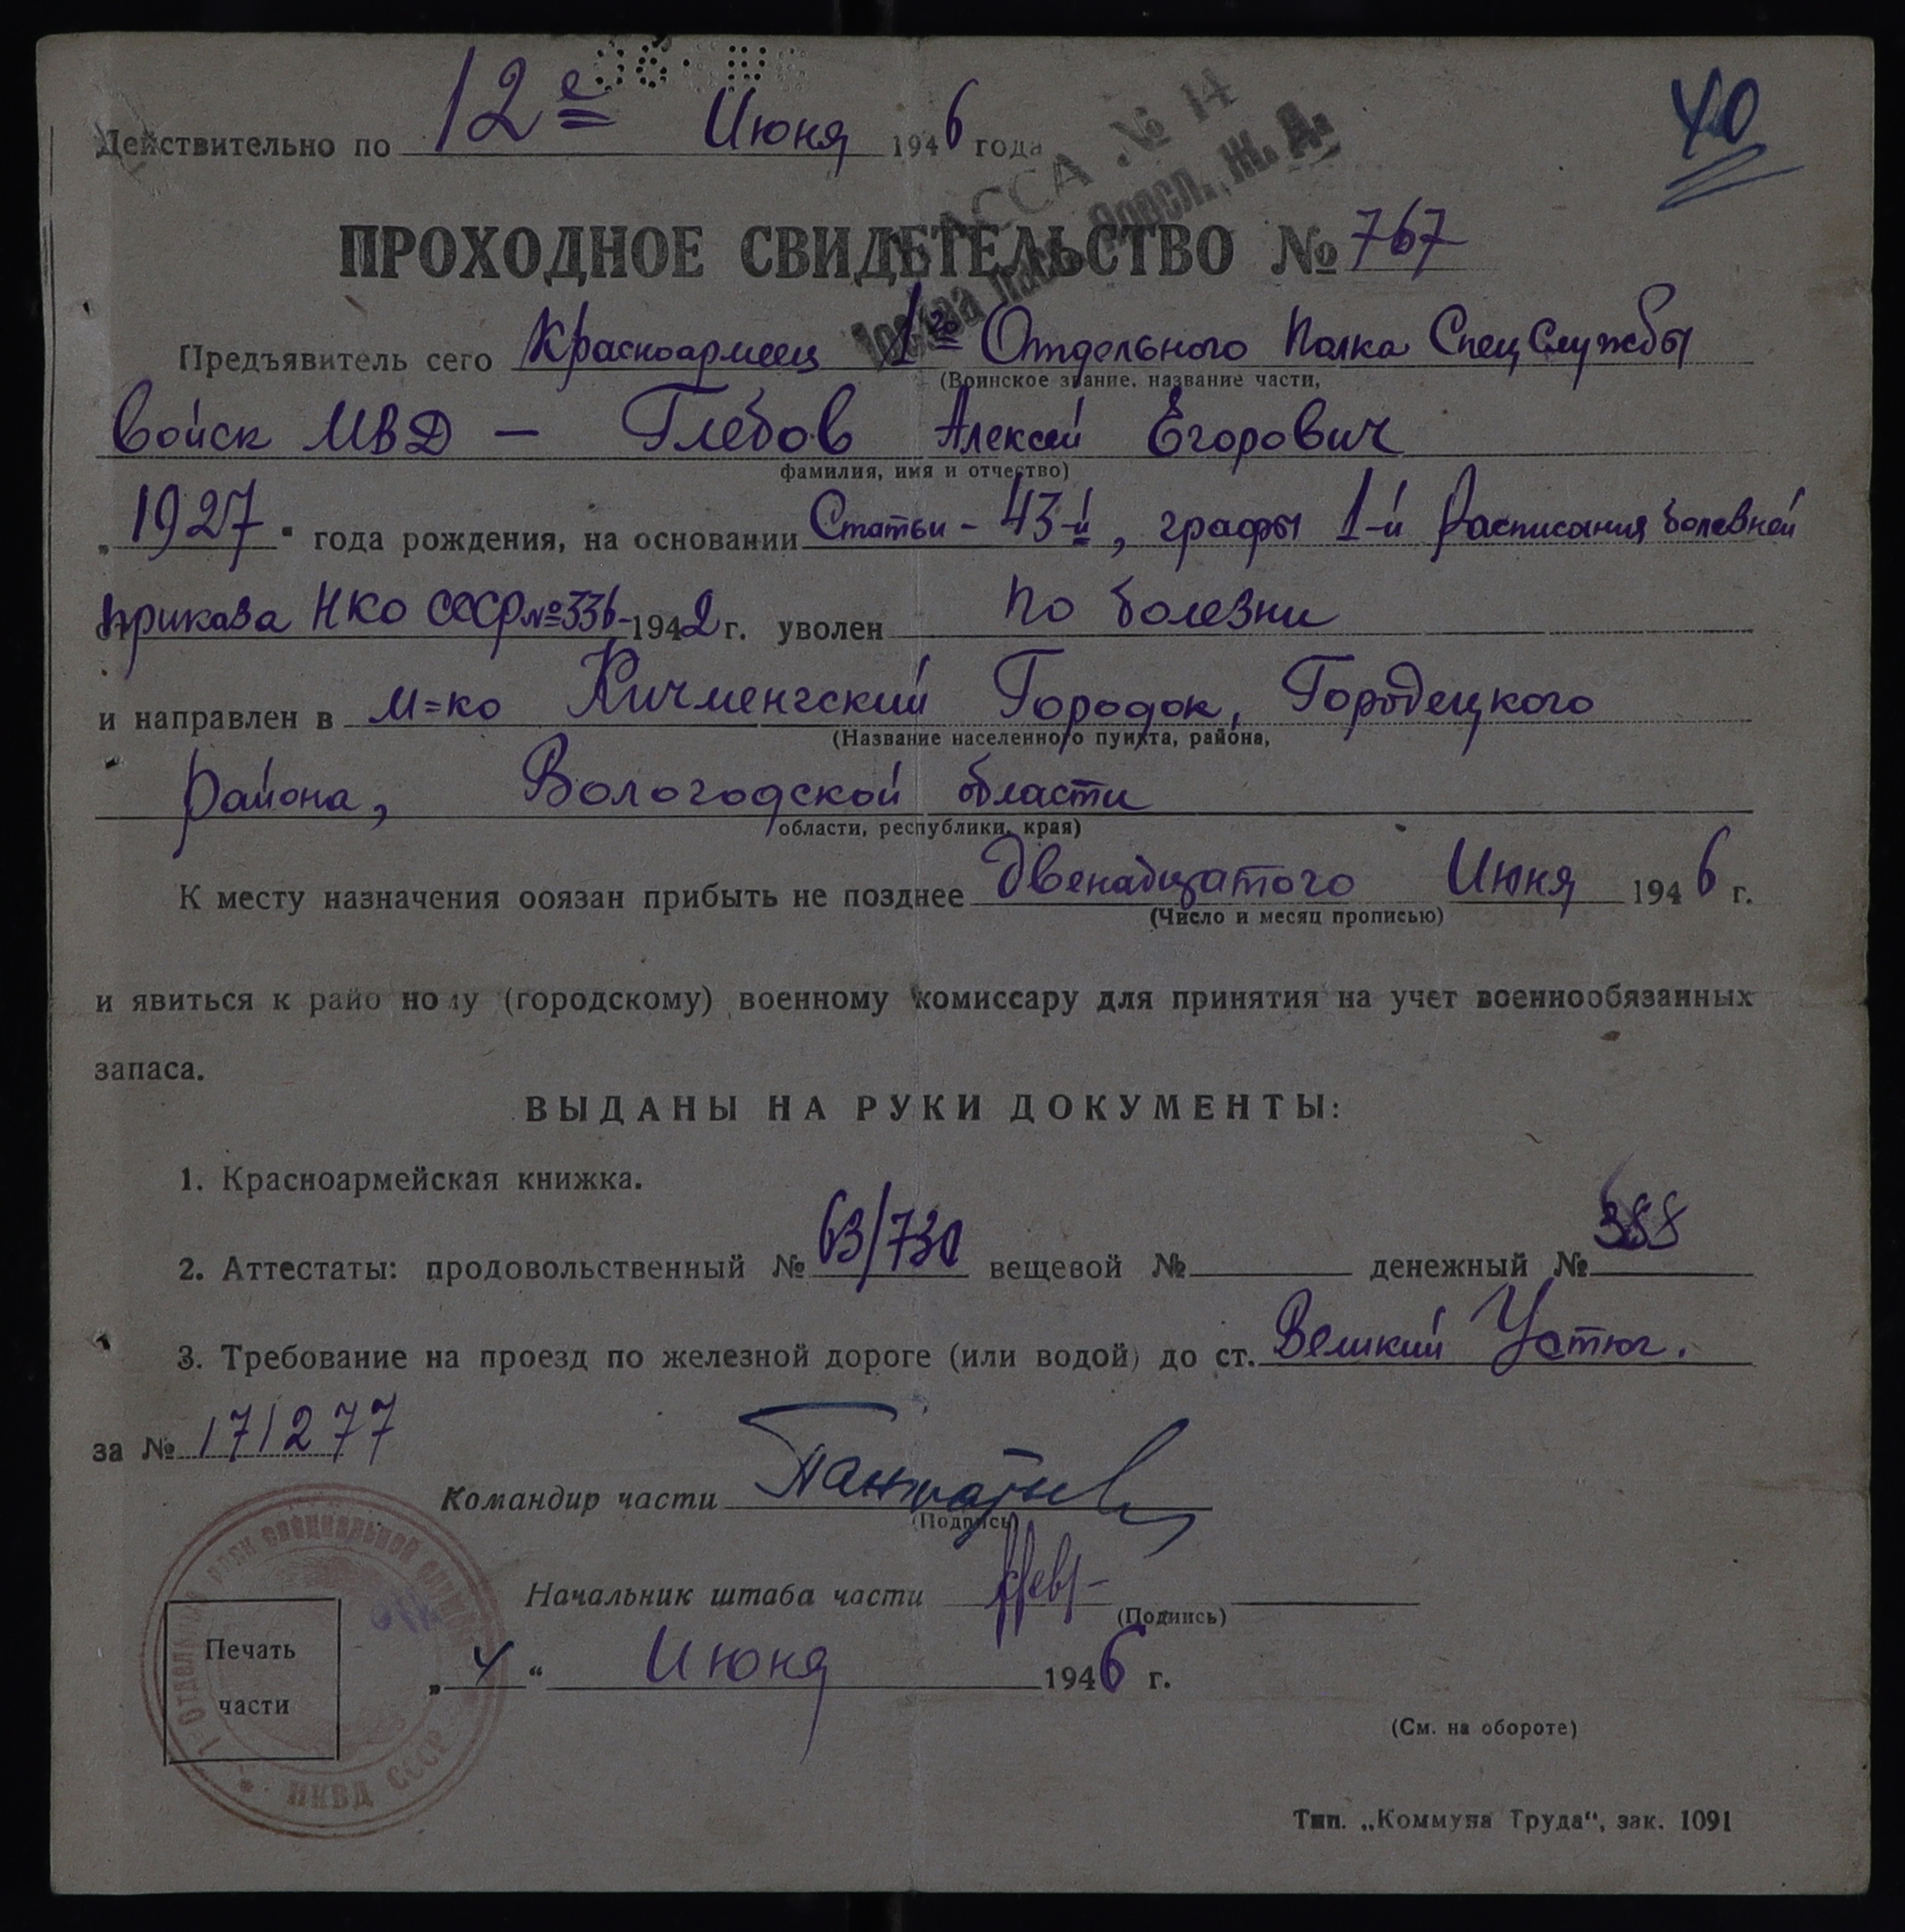 40
Действительно по 12е Июня 1946 года
КАССА № 14
Москва пасс. Яросл. Ж. Д.
ПРОХОДНОЕ СВИДЕТЕЛЬСТВО № 767
Предъявитель сего Красноармеец 1го Отдельного Полка СпецСлужбы
(Воинское звание, название части,
Войск МВД — Глебов Алексей Егорович
фамилия, имя и отчество)
„1927" года рождения, на основании Статьи - 43-й, графы 1-й Расписания болезней
приказа НКО СССР № 336 - 1942 г. уволен по болезни
и направлен в м=ко Кичменгский Городок, Городецкого
(Название населенного пункта, района,
района, Вологодской области
области, республики, края)
К месту назначения обязан прибыть не позднее двенадцатого Июня 1946 г.
(Число и месяц прописью)
и явиться к райо ному (городскому) военному комиссару для принятия на учет военнообязанных
запаса.
ВЫДАНЫ НА РУКИ ДОКУМЕНТЫ:
1. Красноармейская книжка.
2. Аттестаты: продовольственный № 63/730 вещевой № денежный № 388
3. Требование на проезд по железной дороге (или водой) до ст. Великий Устюг.
за № 171277
Командир части
(Подпись)
Начальник штаба части
(Подпись)
Печать
части
„4" Июня 1946 г.
1 ОТДЕЛЬНЫЙ ПОЛК СПЕЦИАЛЬНОЙ СЛУЖБЫ
НКВД СССР
(См. на обороте)
Тип. „Коммуна Труда", зак. 1091